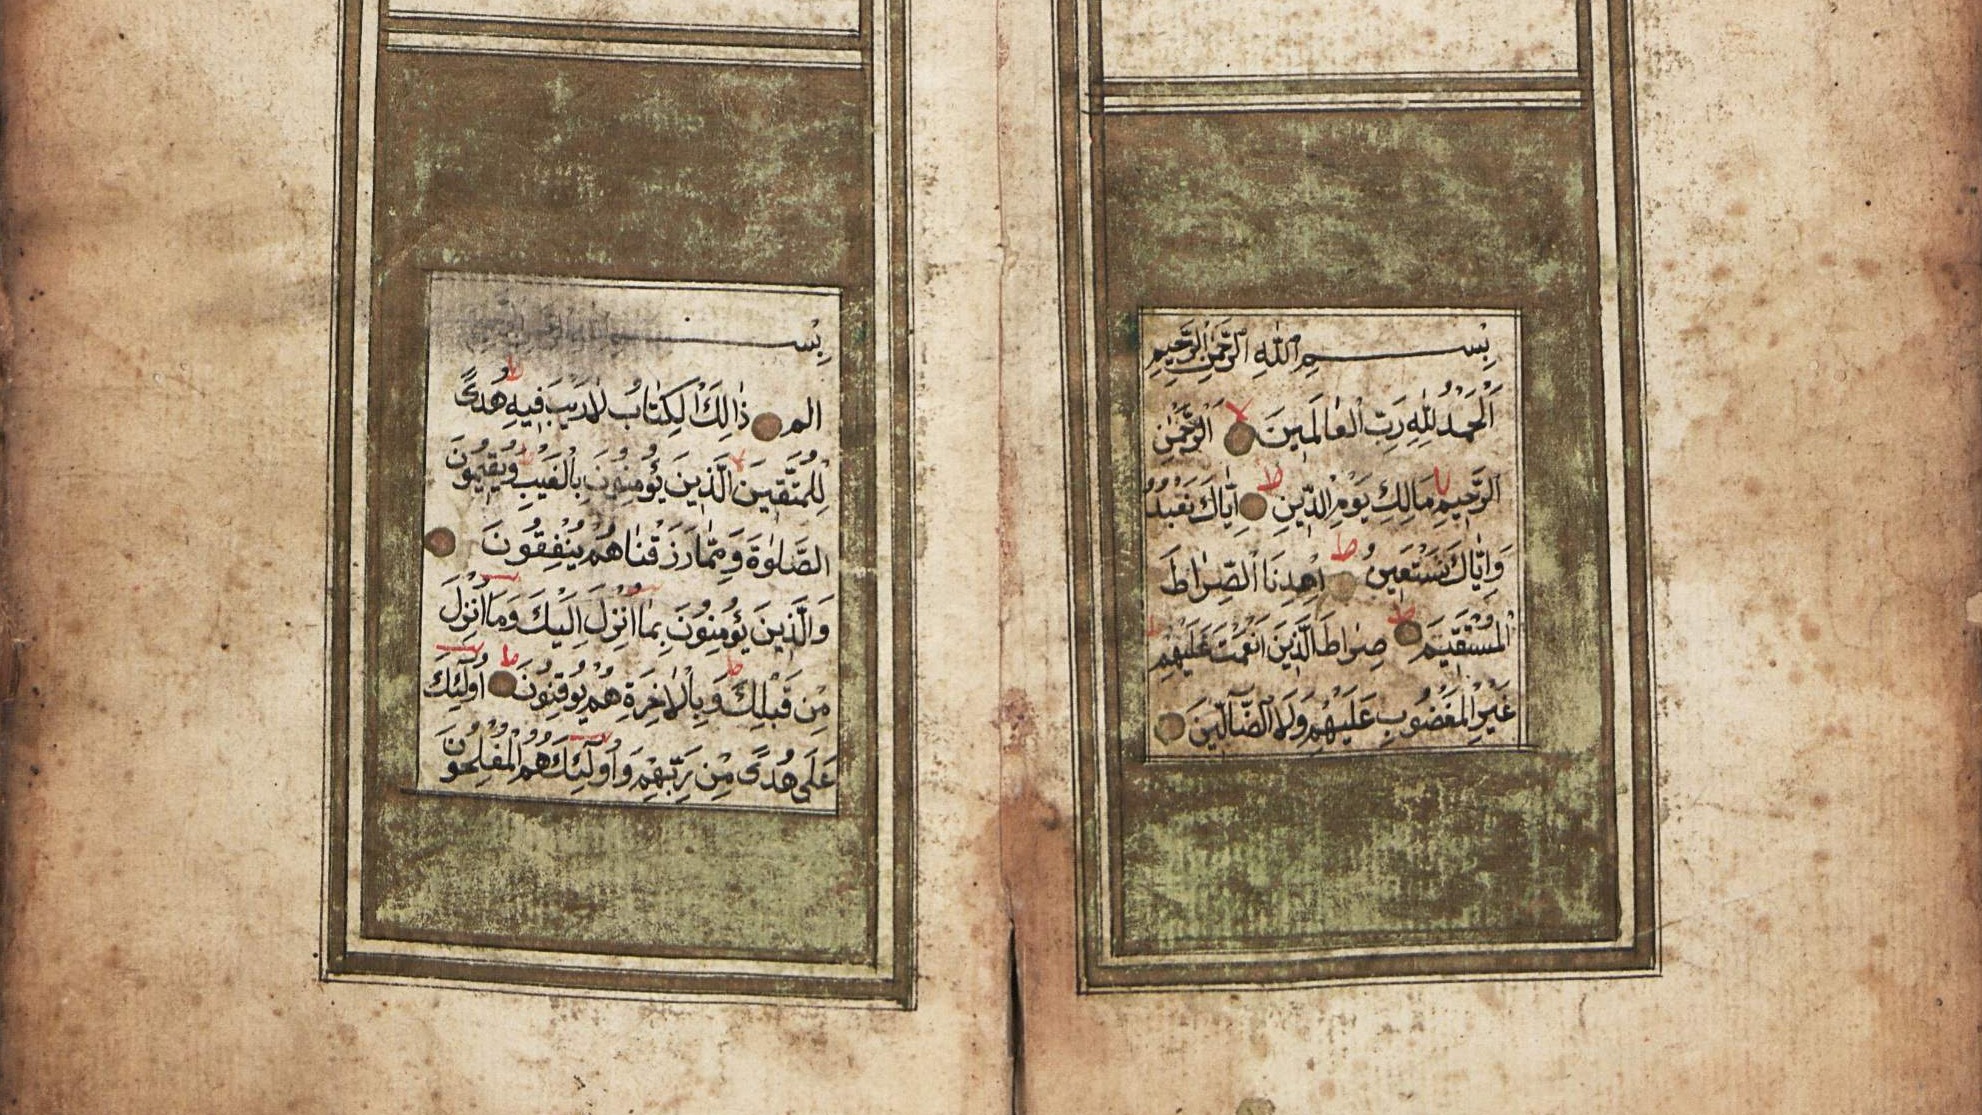 بِسْمِ اللّٰهِ الرَّحْمٰنِ الرَّحِيمِ
اَلْحَمْدُ لِلّٰهِ رَبِّ الْعَالَمِينَ الرَّحْمٰنِ
الرَّحِيمِ مَالِكِ يَوْمِ الدِّينِ اِيَّاكَ نَعْبُدُ
وَاِيَّاكَ نَسْتَعِينُ اِهْدِنَا الصِّرَاطَ
الْمُسْتَقِيمَ صِرَاطَ الَّذِينَ اَنْعَمْتَ عَلَيْهِمْ
غَيْرِ الْمَغْضُوبِ عَلَيْهِمْ وَلَا الضَّالِّينَ
بِسْـ
الم ذَالِكَ الْكِتَابُ لَا رَيْبَ فِيهِ هُدًى
لِلْمُتَّقِينَ الَّذِينَ يُؤْمِنُونَ بِالْغَيْبِ وَيُقِيمُونَ
الصَّلٰوةَ وَمِمَّا رَزَقْنَاهُمْ يُنْفِقُونَ
وَالَّذِينَ يُؤْمِنُونَ بِمَا اُنْزِلَ اِلَيْكَ وَمَا اُنْزِلَ
مِنْ قَبْلِكَ وَبِالْاٰخِرَةِ هُمْ يُوقِنُونَ اُولٰٓئِكَ
عَلٰى هُدًى مِنْ رَبِّهِمْ وَاُولٰٓئِكَ هُمُ الْمُفْلِحُونَ